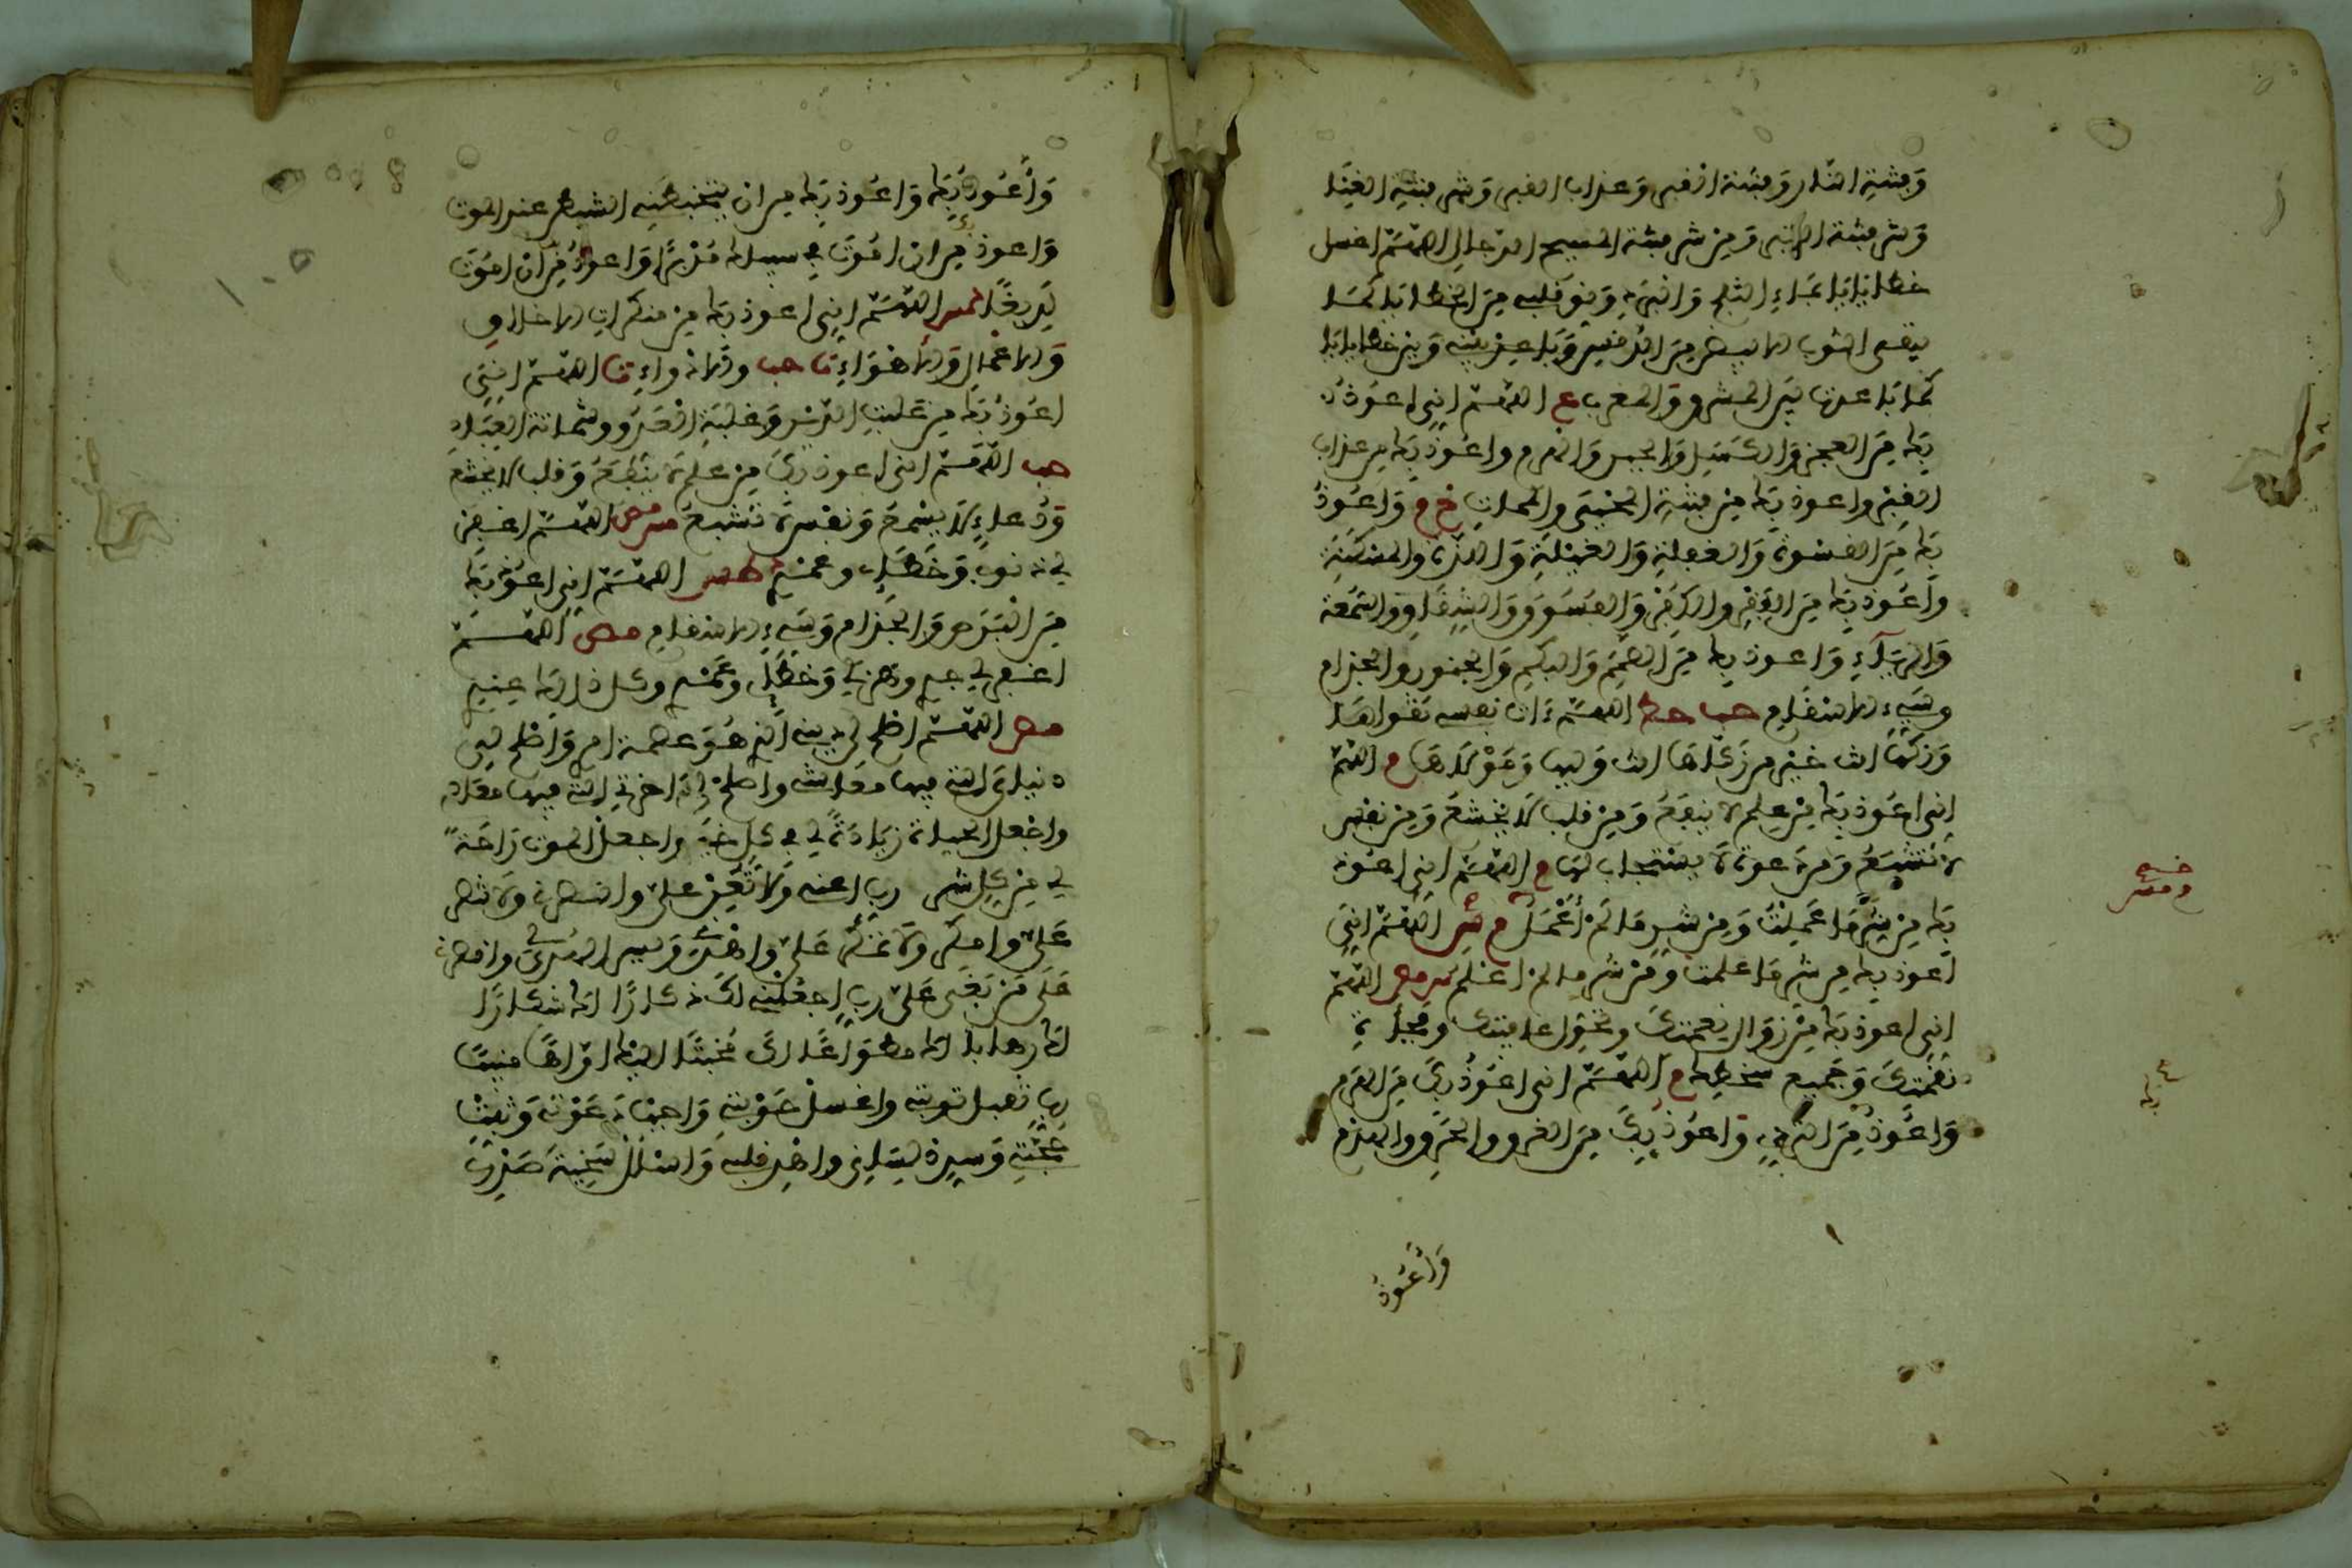 وَفِتْنَةِ النار وَفتنة القبر وَعذاب القبر وَشر فتنة الغنا
وَشر فتنة الفقر وَمن شر فتنة المسيح الدجال اللهم اغسل
خطاياي بماء الثلج وَالبرد وَنق قلبي من الخطايا كما
ينقى الثوب الابيض من الدنس وَباعد بيني وَبين خطاياي
كما باعدت بين المشرق وَالمغرب ع اللهم اني اعوذ
بك من العجز وَالكسل وَالجبن وَالهرم واعوذ بك من عذاب
القبر واعوذ بك من فتنة المحيى والممات خ م وَاعوذ
بك من القسوة وَالغفلة وَالعيلة وَالذلة والمسكنة
وَأعوذ بك من الفقر والكفر وَالفسوق وَالشقاق والسمعة
وَالرياء وَاعوذ بك من الصمم وَالبكم وَالجنون والجذام
وسيء الاسقام حب حط اللهم ءات نفسي تقواها
وَزكها انت خير من زكاها انت وليها وَمولاها م اللهم
اني اعوذ بك من علم لا ينفع وَمن قلب لا يخشع وَمن نفس
لا تشبع وَمن دعوة لا يستجاب لها م اللهم اني اعوذ
بك من شر ما عملت وَمن شر ما لم أعمل م اللهم اني
اعوذ بك من شر ما علمت ومن شر ما لم اعلم س مص اللهم
اني اعوذ بك من زوال نعمتك وتحول عافيتك وفجأة
نقمتك وَجميع سخطك م اللهم اني اعوذ بك من الهدم
وَاعوذ بك من التردي وَاعوذ بك من الغرق والحرق والهرم
وَأعُوذ
وَأعوذ بك وَاعوذ بك من ان يتخبطني الشيطن عند الموت
وَاعوذ بك من ان اموت في سبيلك مدبرا وَاعوذ بك من ان اموت
لديغا س اللهم اني اعوذ بك من منكرات الاخلاق
وَالاعمال وَالاهواء ت حب والادواء ت اللهم اني
اعوذ بك من غلبة الدين وَغلبة العدو وشماتة العباد
حب اللهم اني اعوذ بك من علم لا ينفع وَقلب لا يخشع
وَدعاء لا يسمع وَنفس لا تشبع مص اللهم اغفر
لي ذنوبي وَخطئي وعمدي ط اللهم اني اعوذ بك
من البرص وَالجذام وَسيء الاسقام مص اللهم
اغفر لي جدي وهزلي وَخطئي وعمدي وكل ذلك عندي
مص اللهم اصلح لي ديني الذي هو عصمة امري وَاصلح لي
دنياي التي فيها معاشي واصلح لي اخرتي التي فيها معادي
واجعل الحياة زيادة لي في كل خير واجعل الموت راحة
لي من كل شر رب اعني ولا تعن علي وانصرني ولا تنصر
علي وامكر ولا تمكر علي واهدني ويسر الهدى لي وانصرني
على من بغى علي رب اجعلني لك ذكارا لك شكارا
لك رهابا لك مطواعا لك مخبتا اليك اواها منيبا
رب تقبل توبتي واغسل حوبتي وَاجب دعوتي وَثبت
حجتي وَسدد لساني واهد قلبي وَاسلل سخيمة صدري